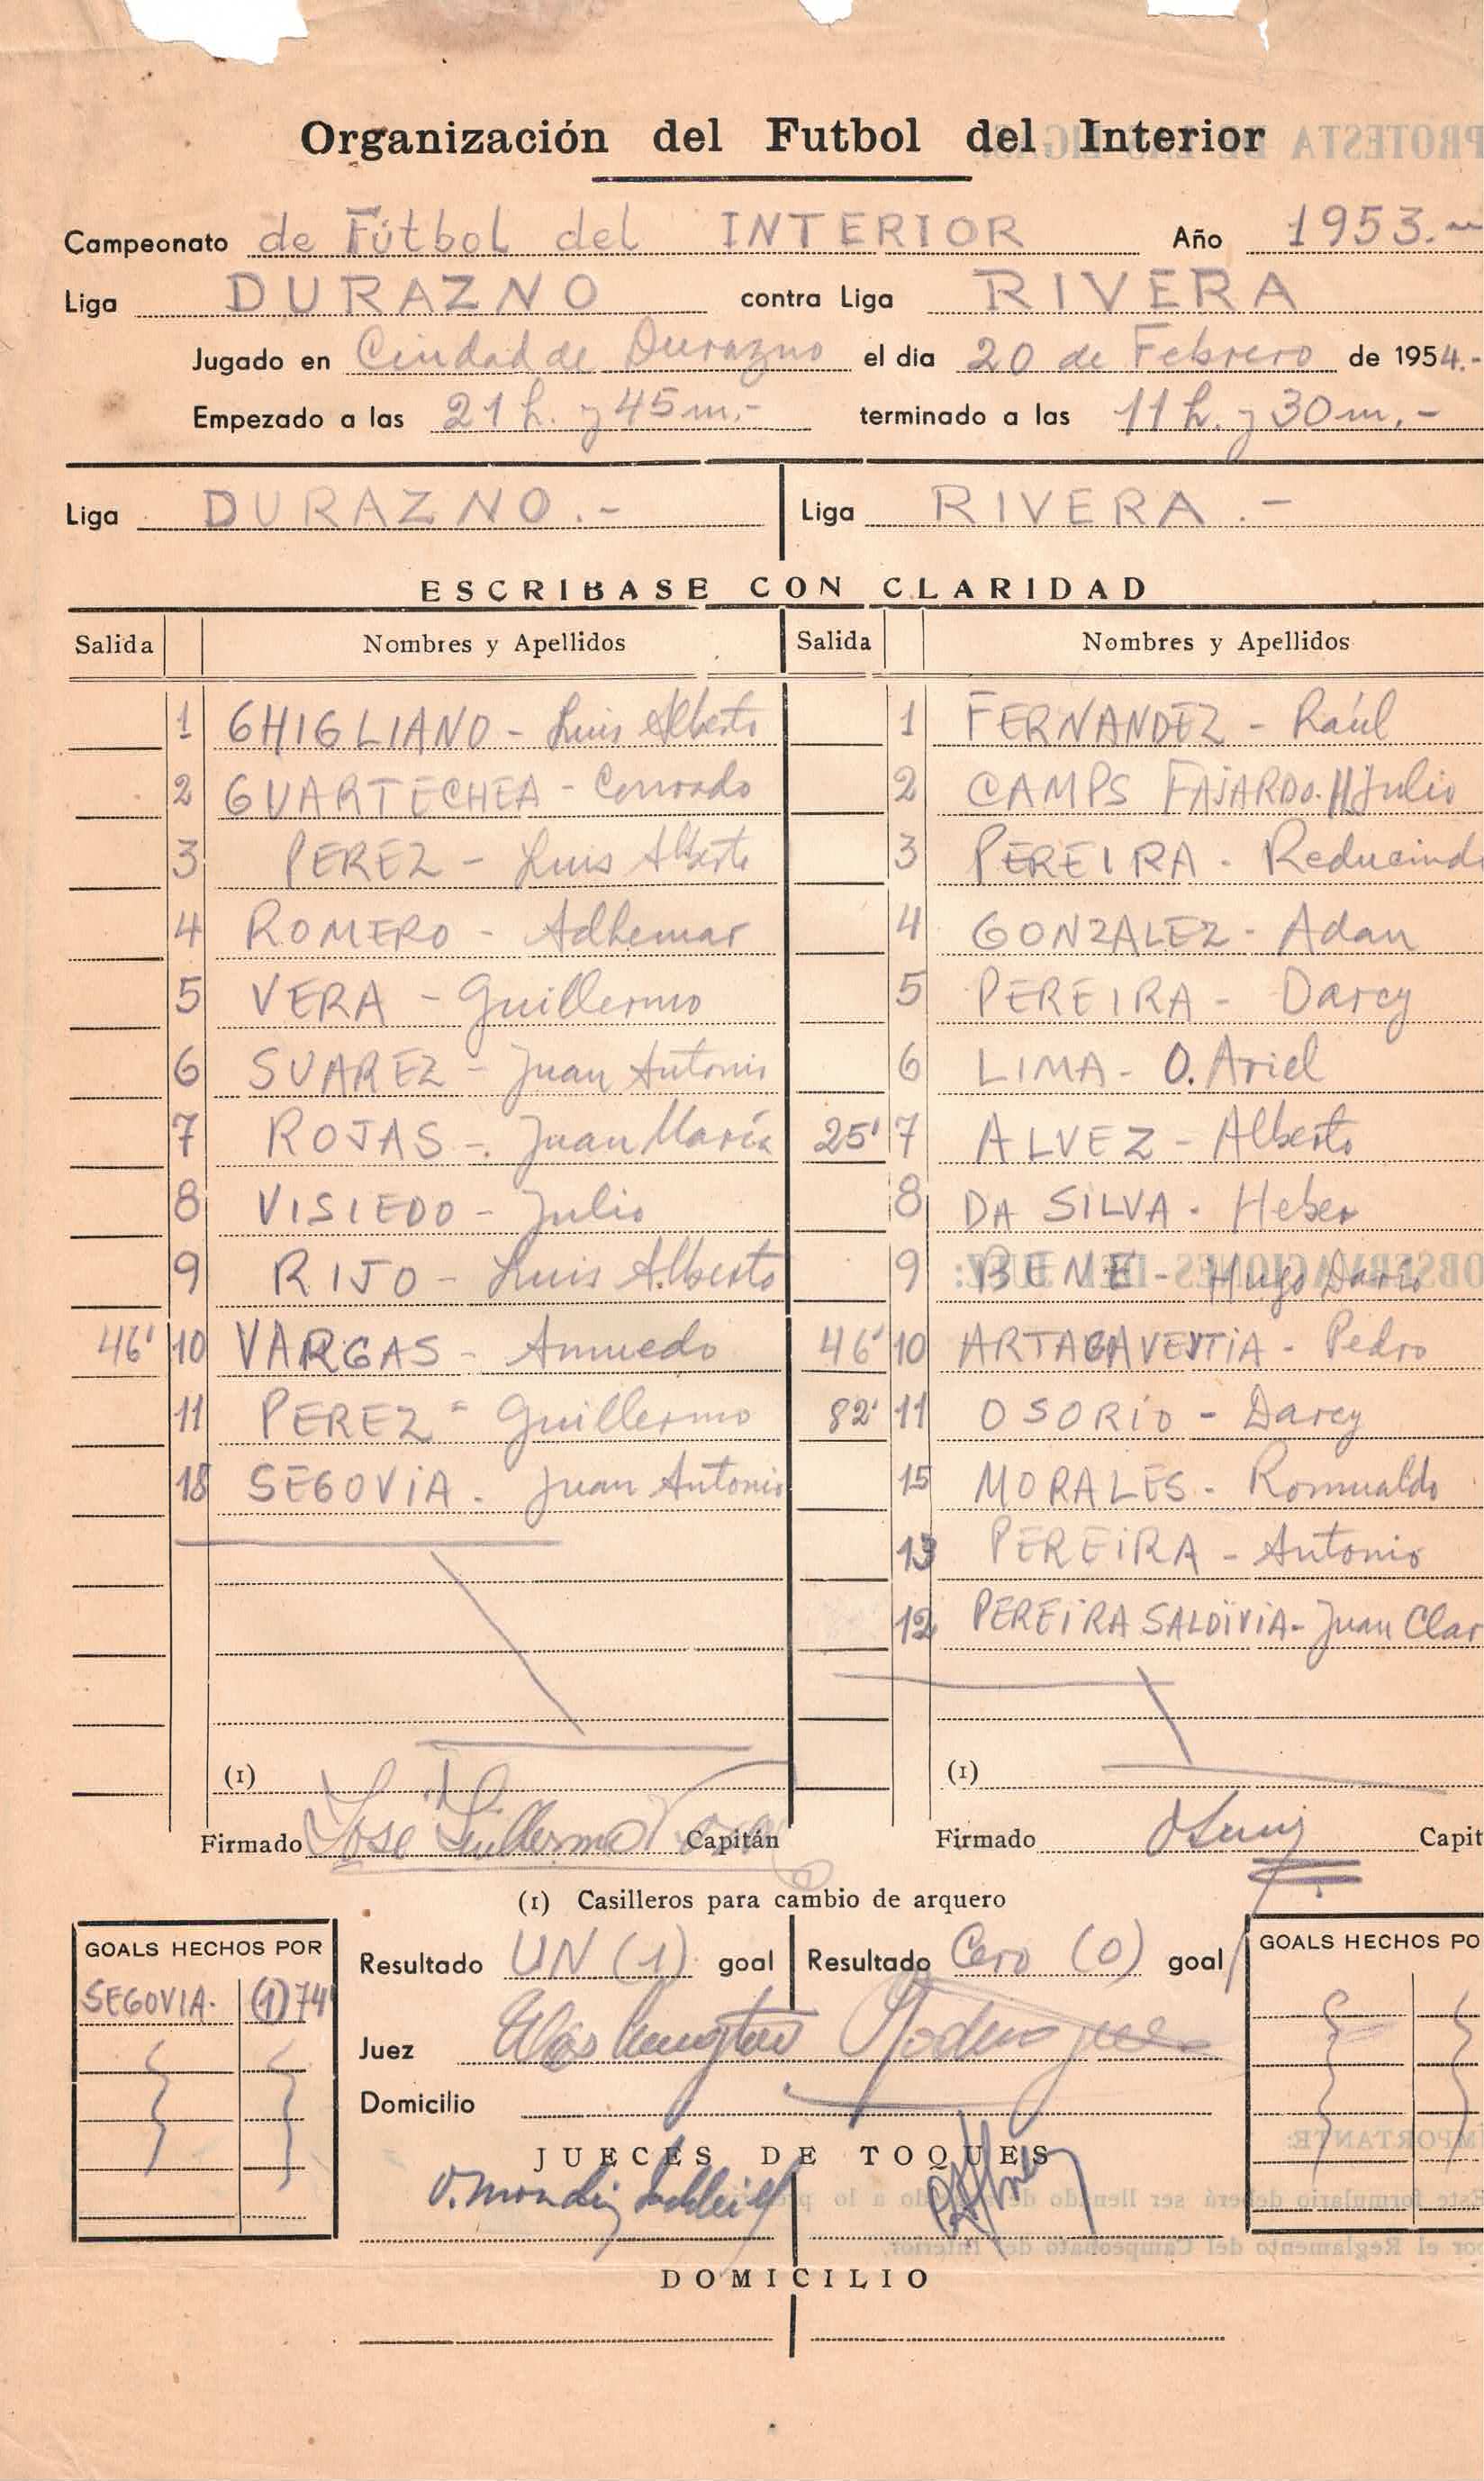 Organización del Futbol del Interior
Campeonato de Fútbol del INTERIOR Año 1953.-
Liga DURAZNO contra Liga RIVERA
Jugado en Ciudad de Durazno el dia 20 de Febrero de 1954.-
Empezado a las 21 h. y 45 m.- terminado a las 11 h. y 30 m.-
Liga DURAZNO.- Liga RIVERA.-
ESCRIBASE CON CLARIDAD
Salida Nombres y Apellidos Salida Nombres y Apellidos
1 GHIGLIANO - Luis Alberto 1 FERNANDEZ - Raúl
2 GUARTECHEA - Conrado 2 CAMPS FAJARDO. Julio
3 PEREZ - Luis Alberto 3 PEREIRA - Reducind
4 ROMERO - Adhemar 4 GONZALEZ - Adan
5 VERA - Guillermo 5 PEREIRA - Darcy
6 SUAREZ - Juan Antonio 6 LIMA - O. Ariel
7 ROJAS - Juan María 25' 7 ALVEZ - Alberto
8 VISIEDO - Julio 8 DA SILVA - Heber
9 RIJO - Luis Alberto 9 - Hugo Dario
46' 10 VARGAS - 46' 10 - Pedro
11 PEREZ - Guillermo 82' 11 OSORIO - Darcy
18 SEGOVIA - Juan Antonio 15 MORALES - Romualdo
13 PEREIRA - Antonio
12 PEREIRA SALDIVIA - Juan Clar
(1) (1)
Firmado José Guillermo Capitán Firmado Capit
(1) Casilleros para cambio de arquero
GOALS HECHOS POR Resultado UN (1) goal Resultado Cero (0) goal GOALS HECHOS PO
SEGOVIA. (1) 74
Juez Washington Rodriguez
Domicilio
JUECES DE TOQUES
DOMICILIO